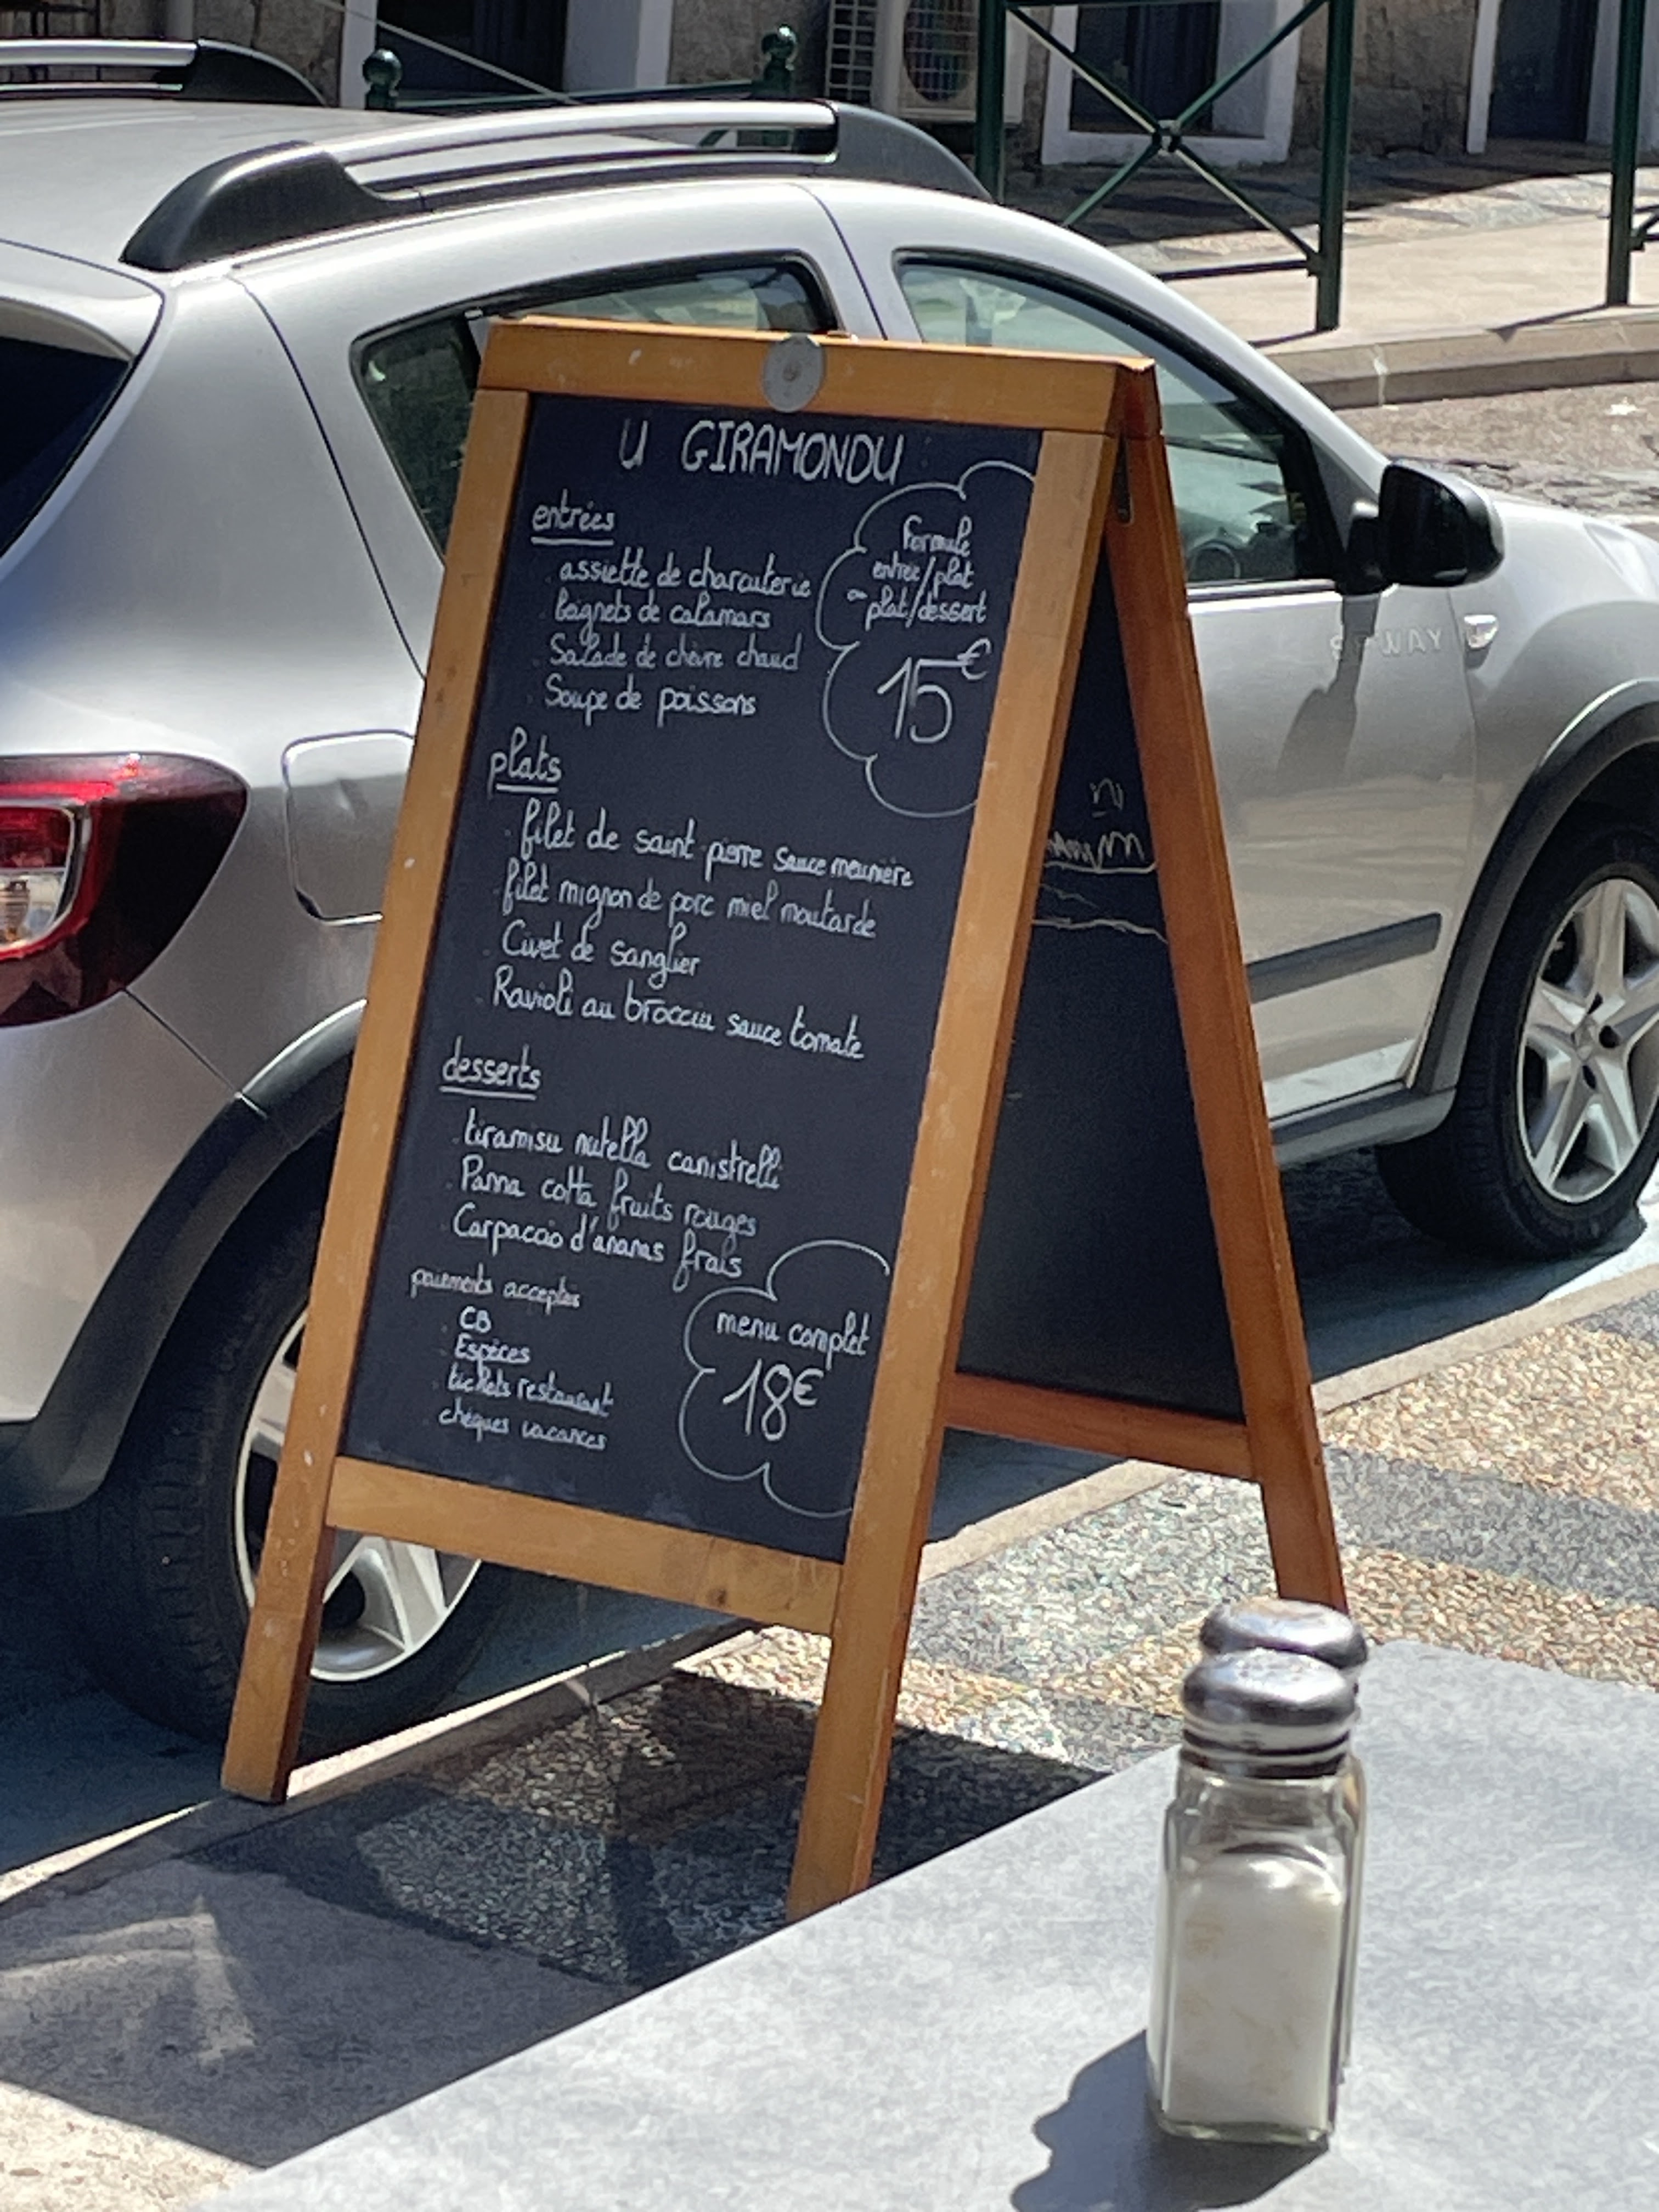 U GIRAMONDU
entrées
assiette de charcuterie
beignets de calamars
Salade de chèvre chaud
Soupe de poissons
Formule
entrée/plat
ou plat/dessert
15€
plats
filet de saint pierre sauce meunière
filet mignon de porc miel moutarde
Civet de sanglier
Ravioli au brocciu sauce tomate
desserts
tiramisu nutella canistrelli
Panna cotta fruits rouges
Carpaccio d'ananas frais
paiements acceptés
CB
Espèces
tickets restaurant
chèques vacances
menu complet
18€